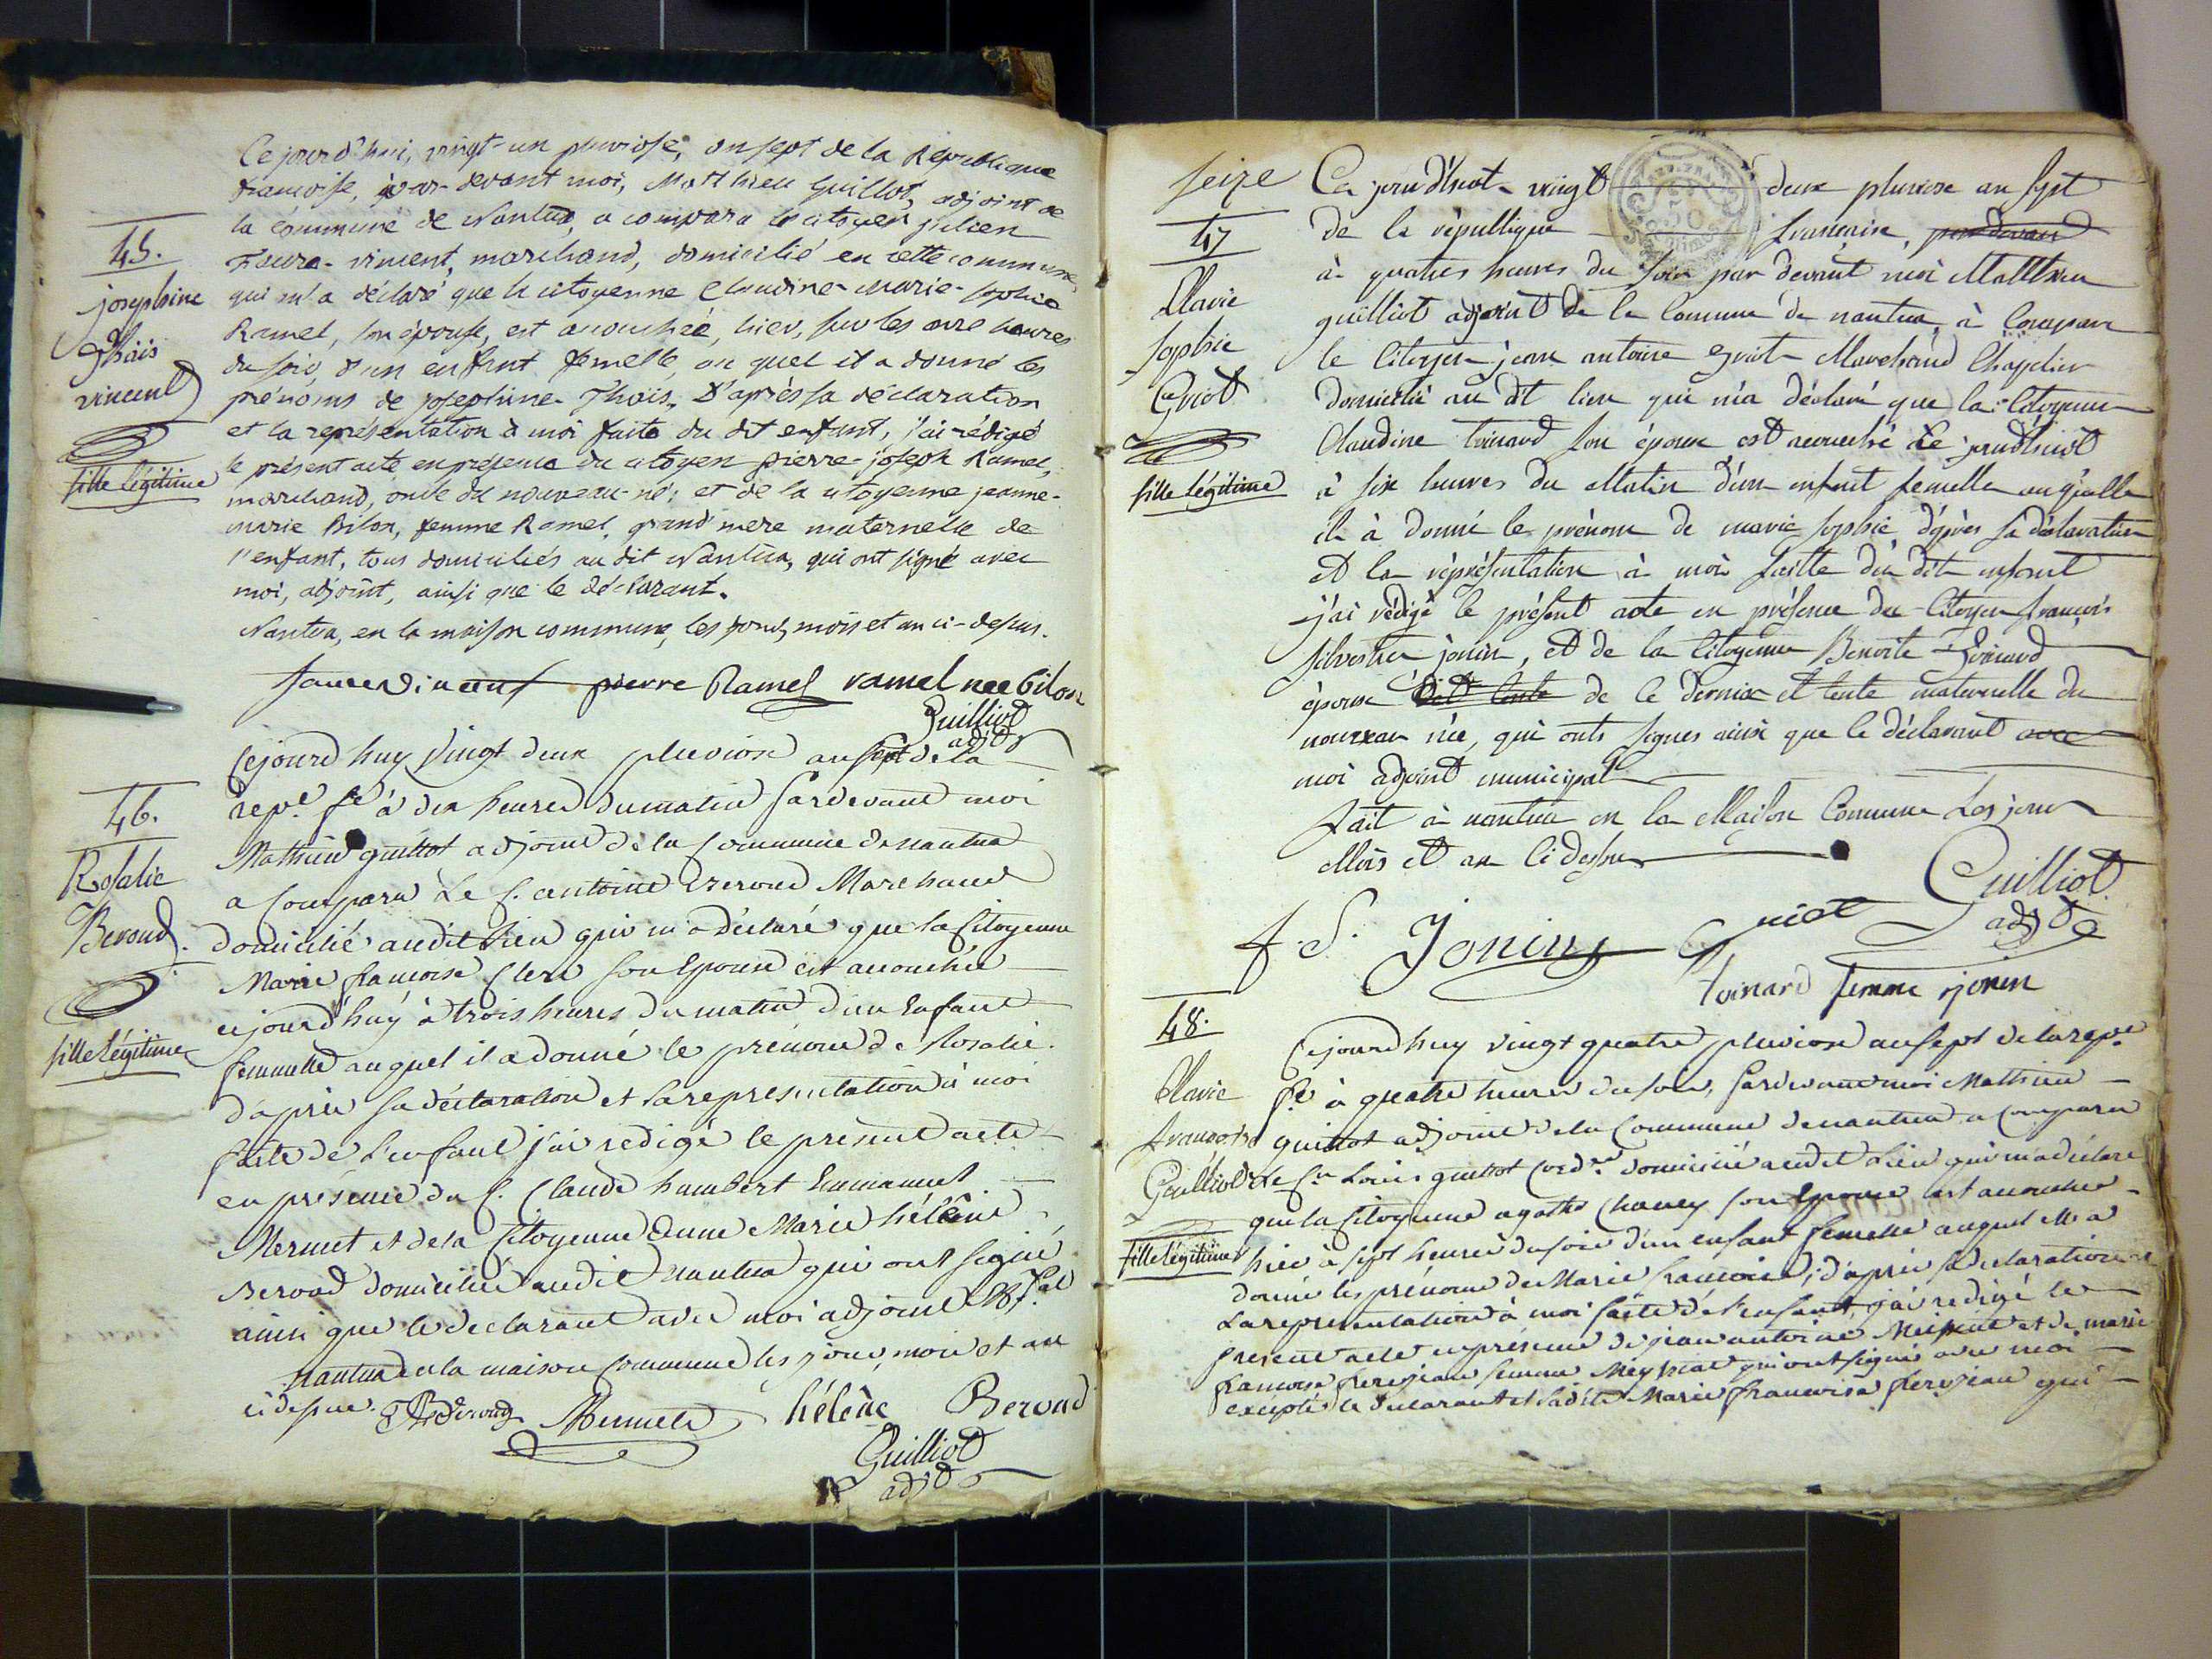 Ce jourd'hui, vingt-un pluviose, an sept de la République
francoise, par-devant moi, Matthieu Guillot, adjoint de
la commune de Nantua, a comparu le citoyen julien
Faure-vincent, marchand, domicilié en cette commune,
qui m'a déclaré que la citoyenne Claudine-Marie-sophie
Ramel, son épouse, est accouchée, hier, sur les onze heures
du soir, d'un enfant femelle, au quel il a donné les
prénoms de josephine-Thaïs. D'après sa déclaration
et la représentation à moi faite du dit enfant, j'ai rédigé
le présent acte en présence du citoyen pierre-joseph Ramel,
marchand, oncle du nouveau-né; et de la citoyenne jeanne-
marie Bilon, femme Ramel, grand'mere maternelle de
l'enfant, tous domiciliés au dit Nantua, qui ont signé avec
moi, adjoint, ainsi que le déclarant.
Nantua, en la maison commune, les jour, mois et an ci-dessus.
45.
josephine
Thaïs
vincent
fille légitime
faure vincent pierre Ramel ramel nee bilon
Guilliot
adjt
Cejourd huy vingt deux pluviose an sept de la
repe. fe à dix heures du matin pardevant moi
Mathieu guillot adjoint de la Commune de nantua
a Comparu Le C. antoine Beroud Marchand
domicilié audit Lieu qui m'a déclaré que la Citoyenne
Marie francoise Clerc son Epouse est accouchée
cejourd'huy à trois heures du matin d'un Enfant
femelle auquel il a donné le prénom de Rosalie.
d'après sa déclaration et la representation à moi
faite de l'enfant j'ai redigé le present acte
en présence du C. Claude humbert Emmanuel
Mermet et de la Citoyenne Anne Marie hélène
Beroud domiciliés audit nantua qui ont signé
ainsi que le declarant avec moi adjoint
Nantua en la maison Commune les jour, mois et an
ci dessus.
46.
Rosalie
Beroud.
fille légitime
Beroud Mermet hélène Beroud
Guilliot
adjt
seize
47
Marie
sophie
Guiot
fille légitime
Ce jourd'huit vingt deux pluviose an sept
de la république francaise, pardevant
à quatres heures du soir par devant moi Matthieu
guilliot adjoint de la Commune de nantua, à Comparu
le Citoyen jean antoine guiot Marchand Chapelier
domicilié au dit lieu qui m'a déclaré que la Citoyenne
Claudine toinard son épouse est accouchée Le jourd'huit
à six heures du Matin d'un enfant femelle au quelle
il à donné le prénom de marie sophie, d'après sa déclaration
et la réprésentation à moi faitte du dit enfant
j'ai rédigé le présent acte en présence du Citoyen françois
silvestre jonin, et de la Citoyenne Benoite toinard
épouse de ce dernier et tente maternelle du
nouveau née, qui onts signés ainsi que le déclarant avec
moi adjoint municipal
fait à nantua en la Maison Commune Les jour
Mois et an Ci dessus
F. S. Jonin Guiot Guilliot
adjt
toinard femme jonin
48.
Marie
francoise
Guilliot
fille légitime
Cejourd huy vingt quatre pluviose an sept de la repe.
fe à quatre heures du soir, pardevant moi Mathieu
guillot adjoint de la Commune de nantua a Comparu
Le Cn Louis guillot Cordr. domicilié audit Lieu qui m'a déclaré
que la Citoyenne agathe Chaney son Epouse est accouchée
hier à sept heures du soir d'un enfant femelle auquel il a
donné les prénoms de Marie francoise; d'après sa declaration et
La representation à moi faite de l'enfant, j'ai redigé le
present acte en présence de jean antoine et de marie
francoise femme qui ont signé avec moi
excepté le declarant et ladite Marie francoise qui